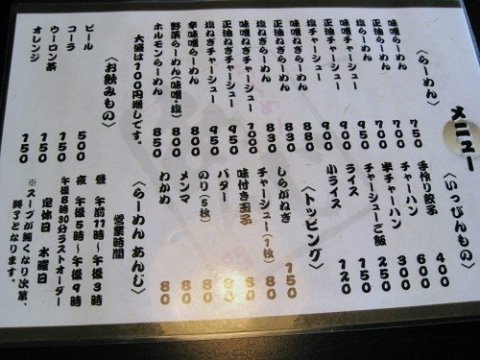 メニュー
〈らーめん〉
味噌らーめん 750
正油らーめん 700
塩らーめん 700
味噌チャーシュー 950
正油チャーシュー 900
塩チャーシュー 900
味噌ねぎらーめん 880
正油ねぎらーめん 830
塩ねぎらーめん 830
味噌ねぎチャーシュー 1000
正油ねぎチャーシュー 950
塩ねぎチャーシュー 950
辛味噌らーめん 800
野菜らーめん(味噌・塩) 800
ホルモンらーめん 850
大盛は100円増しです。
〈お飲みもの〉
ビール 500
コーラ 150
ウーロン茶 150
オレンジ 150
〈いっぴんもの〉
手作り餃子 400
チャーハン 600
半チャーハン 300
チャーシューご飯 250
ライス 150
小ライス 120
〈トッピング〉
しらがねぎ 150
チャーシュー(1枚) 80
味付き玉子 80
バター 80
のり(5枚) 80
メンマ 80
わかめ 80
〈らーめん あんじ〉
営業時間
昼 午前11時〜午後3時
夜 午後5時〜午後9時
午後8時30分ラストオーダー
定休日 水曜日
※スープが無くなり次第、
終了となります。